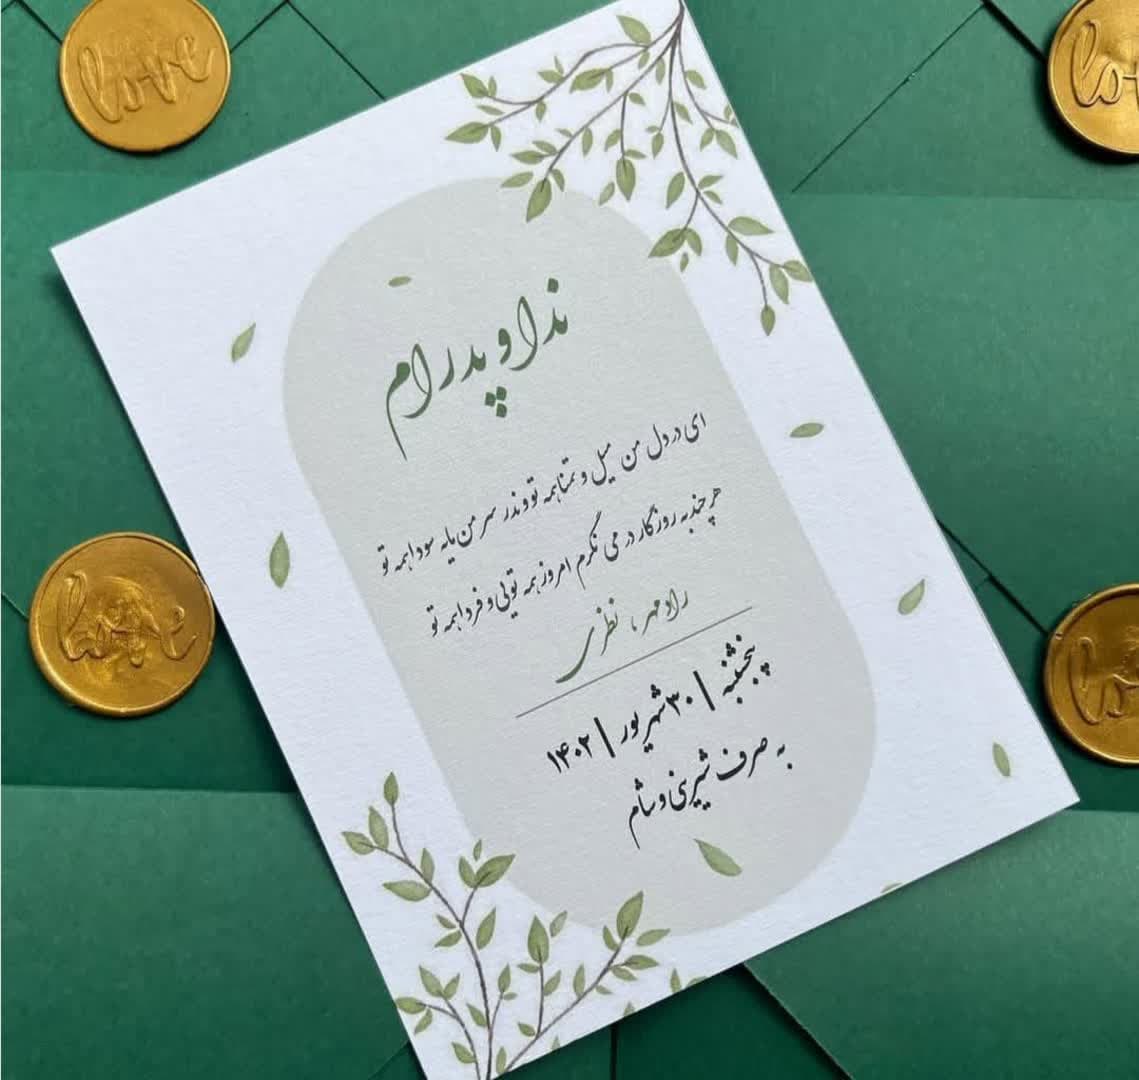 love
ندا و پدرام
ای در دل من میل و تمنا همه تو وندر سر من مایه سودا همه تو
هر چند به روزگار در می نگرم امروز همه تویی و فردا همه تو
رادمهر ، نظری
پنجشنبه | ۳۰ شهریور | ۱۴۰۲
به صرف شیرینی و شام
love